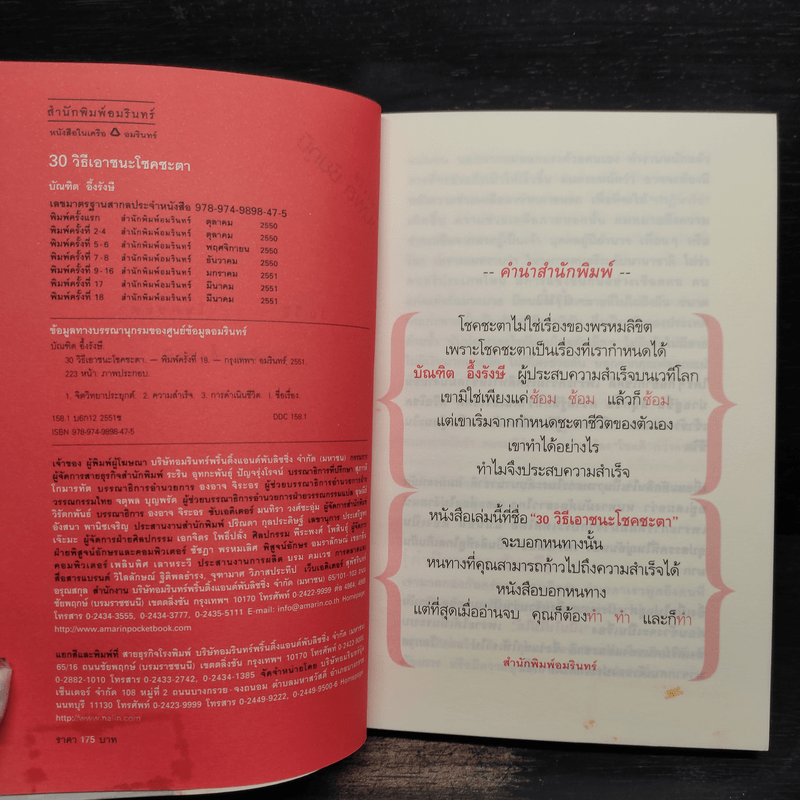 สำนักพิมพ์อมรินทร์
หนังสือในเครือ อมรินทร์
30 วิธีเอาชนะโชคชะตา
บัณฑิต อึ้งรังษี
เลขมาตรฐานสากลประจำหนังสือ 978-974-9898-47-5
พิมพ์ครั้งแรก สำนักพิมพ์อมรินทร์ ตุลาคม 2550
พิมพ์ครั้งที่ 2-4 สำนักพิมพ์อมรินทร์ ตุลาคม 2550
พิมพ์ครั้งที่ 5-6 สำนักพิมพ์อมรินทร์ พฤศจิกายน 2550
พิมพ์ครั้งที่ 7-8 สำนักพิมพ์อมรินทร์ ธันวาคม 2550
พิมพ์ครั้งที่ 9-16 สำนักพิมพ์อมรินทร์ มกราคม 2551
พิมพ์ครั้งที่ 17 สำนักพิมพ์อมรินทร์ มีนาคม 2551
พิมพ์ครั้งที่ 18 สำนักพิมพ์อมรินทร์ มีนาคม 2551
ข้อมูลทางบรรณานุกรมของศูนย์ข้อมูลอมรินทร์
บัณฑิต อึ้งรังษี.
30 วิธีเอาชนะโชคชะตา. — พิมพ์ครั้งที่ 18. — กรุงเทพฯ: อมรินทร์, 2551.
223 หน้า: ภาพประกอบ.
1. จิตวิทยาประยุกต์. 2. ความสำเร็จ. 3. การดำเนินชีวิต. I. ชื่อเรื่อง.
158.1 บ6ก12 2551ข DDC 158.1
ISBN 978-974-9898-47-5
เจ้าของ ผู้พิมพ์ผู้โฆษณา บริษัทอมรินทร์พริ้นติ้งแอนด์พับลิชชิ่ง จำกัด (มหาชน)
ผู้จัดการสายธุรกิจสำนักพิมพ์ ระริน อุทกะพันธุ์ ปัญจรุ่งโรจน์ บรรณาธิการที่ปรึกษา
โกมารทัต บรรณาธิการอำนวยการ องอาจ จิระอร ผู้ช่วยบรรณาธิการอำนวยการฝ่าย
วรรณกรรมไทย จตุพล บุญพรัด ผู้ช่วยบรรณาธิการอำนวยการฝ่ายวรรณกรรมแปล
วิรัตกพันธ์ บรรณาธิการ องอาจ จิระอร ซับเอดิเตอร์ มนทิรา วงศ์ชะอุ่ม ผู้จัดการสำนักพิมพ์
อังสนา พานิชเจริญ ประสานงานสำนักพิมพ์ ปริณดา กุลประดิษฐ์ เลขานุการ
เจ๊ะมะ ผู้จัดการฝ่ายศิลปกรรม เอกจิตร โพธิ์ปลั่ง ศิลปกรรม พีระพงศ์ โพสินธุ์ ผู้จัดการ
ฝ่ายพิสูจน์อักษรและคอมพิวเตอร์ ชัชฎา พรหมเลิศ พิสูจน์อักษร
คอมพิวเตอร์ เพลินพิศ เลาหระวี ประสานงานการผลิต บรม คมเวช การตลาดและ
สื่อสารแบรนด์ วิไลลักษณ์ ฐิติพลธำรง, จุฑามาศ วิภาสประทีป เว็บเอดิเตอร์
อรุณสกุล สำนักงาน บริษัทอมรินทร์พริ้นติ้งแอนด์พับลิชชิ่ง จำกัด (มหาชน) 65/101-103 ถนน
ชัยพฤกษ์ (บรมราชชนนี) เขตตลิ่งชัน กรุงเทพฯ 10170 โทรศัพท์ 0-2422-9999
โทรสาร 0-2434-3555, 0-2434-3777, 0-2435-5111 E-mail: info@amarin.com Homepage:
http://www.amarinpocketbook.com
แยกสีและพิมพ์ที่ สายธุรกิจโรงพิมพ์ บริษัทอมรินทร์พริ้นติ้งแอนด์พับลิชชิ่ง จำกัด (มหาชน)
65/16 ถนนชัยพฤกษ์ (บรมราชชนนี) เขตตลิ่งชัน กรุงเทพฯ 10170 โทรศัพท์ 0-2422-9000,
0-2882-1010 โทรสาร 0-2433-2742, 0-2434-1385 จัดจำหน่ายโดย บริษัทอมรินทร์บุ๊ค
เซ็นเตอร์ จำกัด 108 หมู่ที่ 2 ถนนบางกรวย-จงถนอม ตำบลมหาสวัสดิ์ อำเภอบางกรวย
นนทบุรี 11130 โทรศัพท์ 0-2423-9999 โทรสาร 0-2449-9222, 0-2449-9500-6 Homepage:
http://www.naiin.com
ราคา 175 บาท
-- คำนำสำนักพิมพ์ --
โชคชะตาไม่ใช่เรื่องของพรหมลิขิต
เพราะโชคชะตาเป็นเรื่องที่เรากำหนดได้
บัณฑิต อึ้งรังษี ผู้ประสบความสำเร็จบนเวทีโลก
เขามิใช่เพียงแค่ซ้อม ซ้อม แล้วก็ซ้อม
แต่เขาเริ่มจากกำหนดชะตาชีวิตของตัวเอง
เขาทำได้อย่างไร
ทำไมจึงประสบความสำเร็จ
หนังสือเล่มนี้ที่ชื่อ “30 วิธีเอาชนะโชคชะตา”
จะบอกหนทางนั้น
หนทางที่คุณสามารถก้าวไปถึงความสำเร็จได้
หนังสือบอกหนทาง
แต่ที่สุดเมื่ออ่านจบ คุณก็ต้องทำ ทำ และก็ทำ
สำนักพิมพ์อมรินทร์